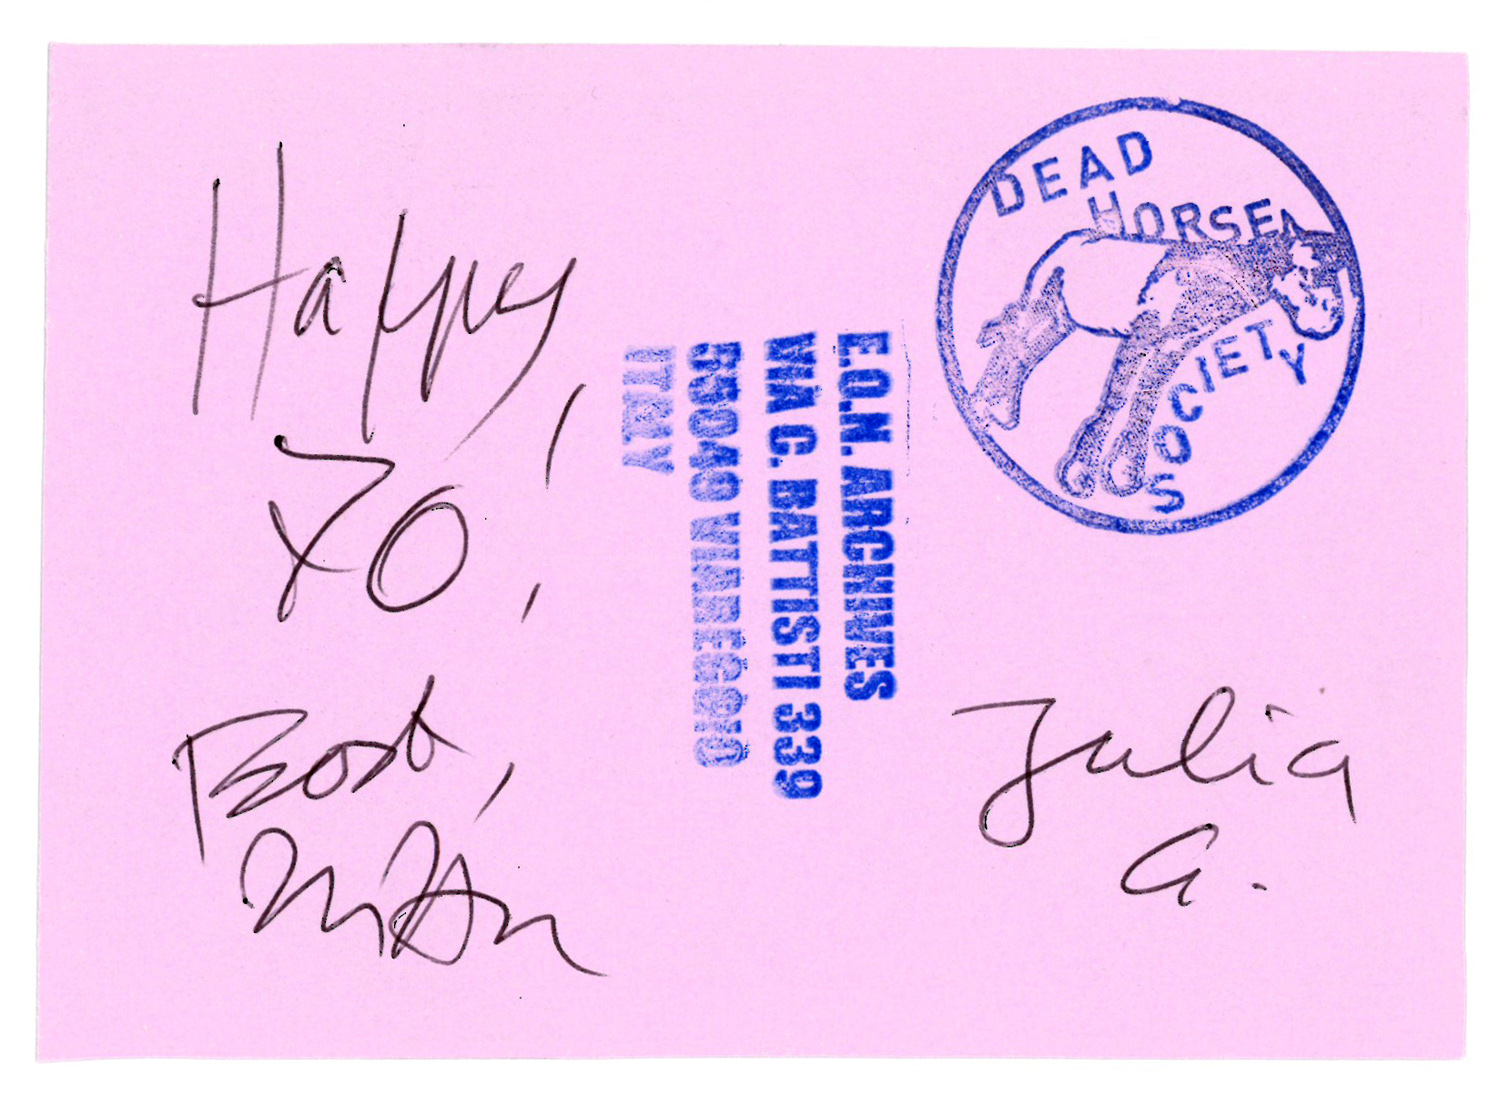 Happy
70!
Best,
E.O.N. ARCHIVES
VIA C. BATTISTI 339
55049 VIAREGGIO
ITALY
DEAD
HORSE
SOCIETY
Julia